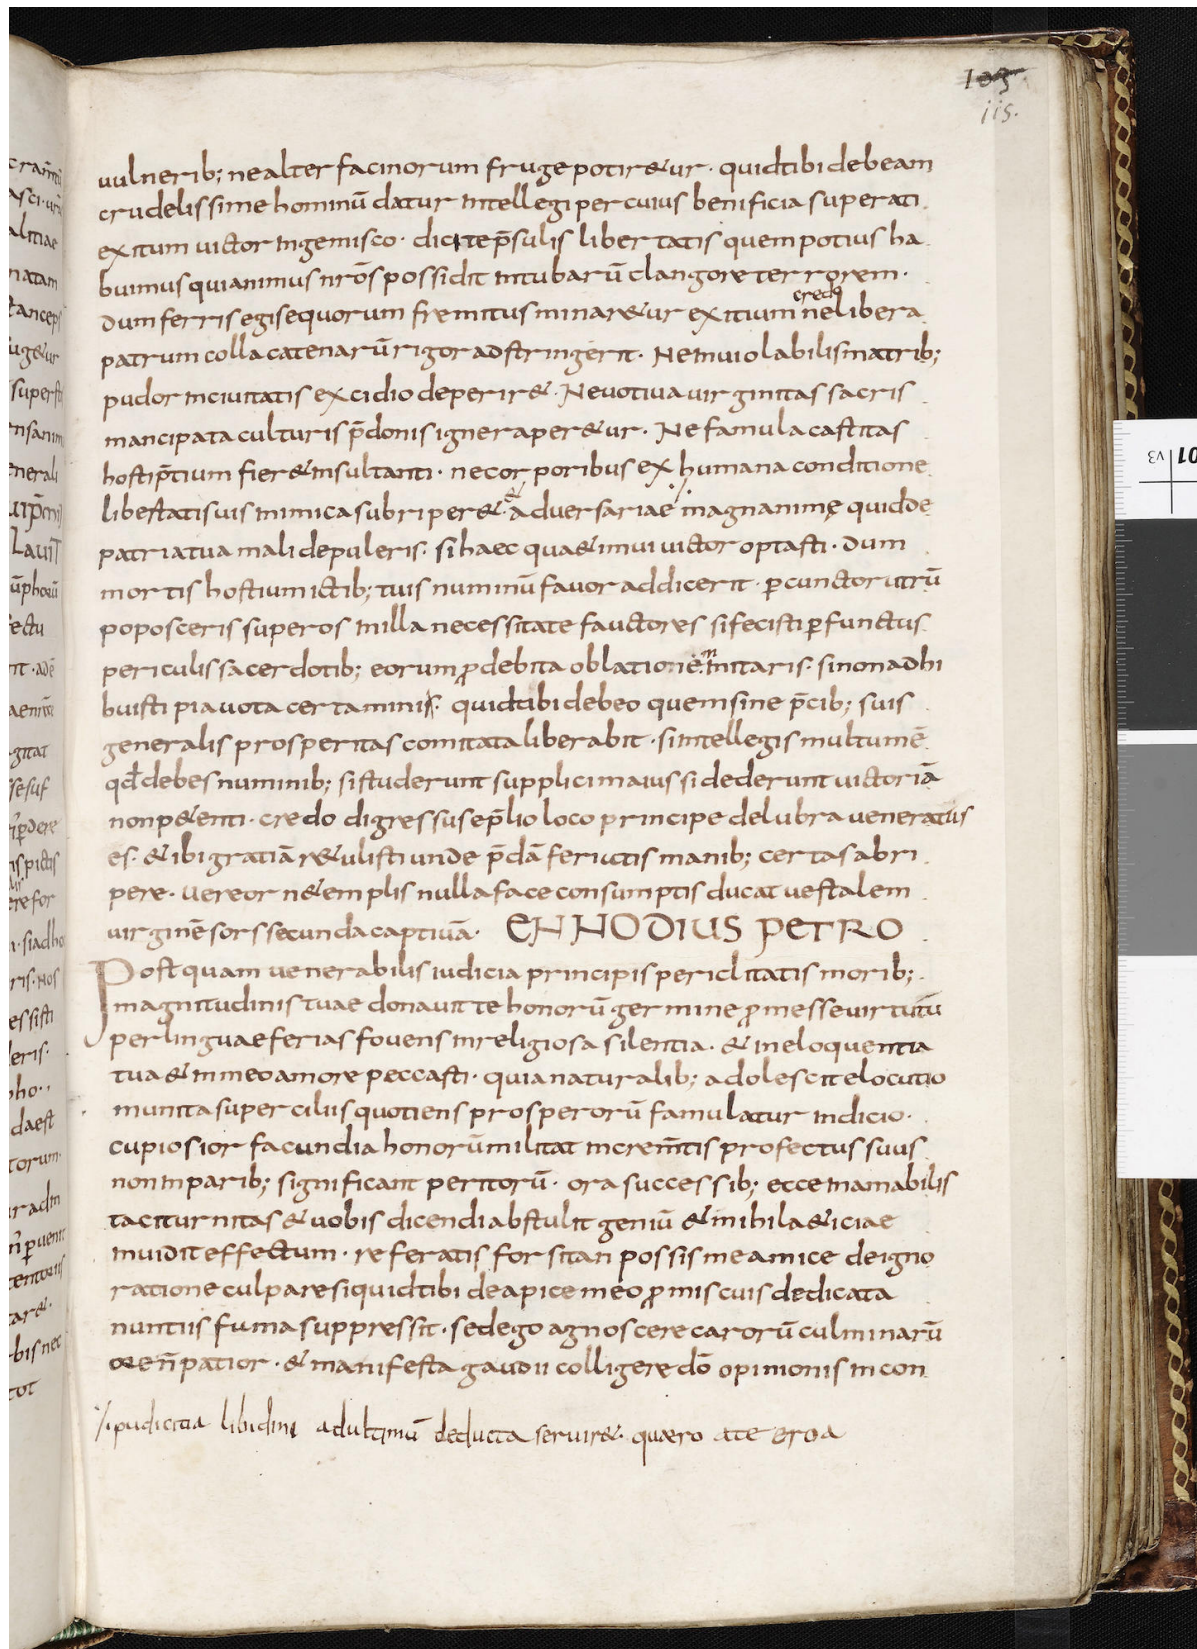 103
iis.
uulnerib; ne alter facinorum fruge potir&ur · quid tibi debeam
crudelissime hominū datur intellegi per cuius benificia superati
exitum uictor ingemisco · dicite p̄sulis libertatis quem potius ha
buimus qui animus nr̄os possidit in tubarū clangore terrorem ·
credo
Dum ferris egis equorum fremitus minar&ur exitium ne libera
patrum colla catenarū rigor adstringerit · Ne inuiolabilis matrib;
pudor in ciuitatis excidio deperir& · Ne uotiua uirginitas sacris
mancipata culturis p̄donis igne raper&ur · Ne famula castitas
hosti p̄tium fier& insultanti · ne corporibus ex humana conditione
libertatis uis inimica subriper& · aduersariae magnanimę quid de
patria tua mali depuleris · si haec quae inui uictor optasti · Dum
mortis hostium ictib; tuis numinū fauor addicerit · p cunctor utrū
poposceris superos in illa necessitate fauctores si fecisti p functus
periculis sacerdotib; eorum p debita oblationē nitaris · si non adhi
buisti pia uota certaminis · quid tibi debeo quem sine p̄cib; suis
generalis prosperitas comitata liberabit · si intellegis multum ē
qđ debes numinib; si studerunt supplici maius si dederunt uictoriā
non p&enti · credo digressus e p̄lio loco principe delubra ueneratus
es · & ibi gratiā r&ulisti unde p̄dā feructis manib; certas abri
pere · uereor ne templis nulla face consumptis ducat uestalem
uirginē sors secunda captiuā · ENNODIUS PETRO
Postquam uenerabilis iudicia principis periclitatis morib;
magnitudinis tuae donauit te honorū germine p messe uirtutū
per linguae ferias fouens inreligiosa silentia · & in eloquentia
tua & in meo amore peccasti · quia naturalib; adolescit elocutio
munita superciliis quotiens prosperorū famulatur indicio ·
cupiosior facundia honorū militat increm̄tis profectus suus
non inparib; significant peritorū · ora successib; ecce inamabilis
taciturnitas & uobis dicendi abstulit geniū & mihi la&iciae
inuidit effectum · referatis forsitan possis me amice de igno
ratione culpare si quid tibi de apice meo p miscuis dedicata
nuntiis fuma suppressit · sed ego agnoscere carorū culminarū
ore n̄ patior · & manifesta gaudii colligere dō opinionis in con
./. pudicitia libidini adultimū deducta seruir& · quaero a te ergo a